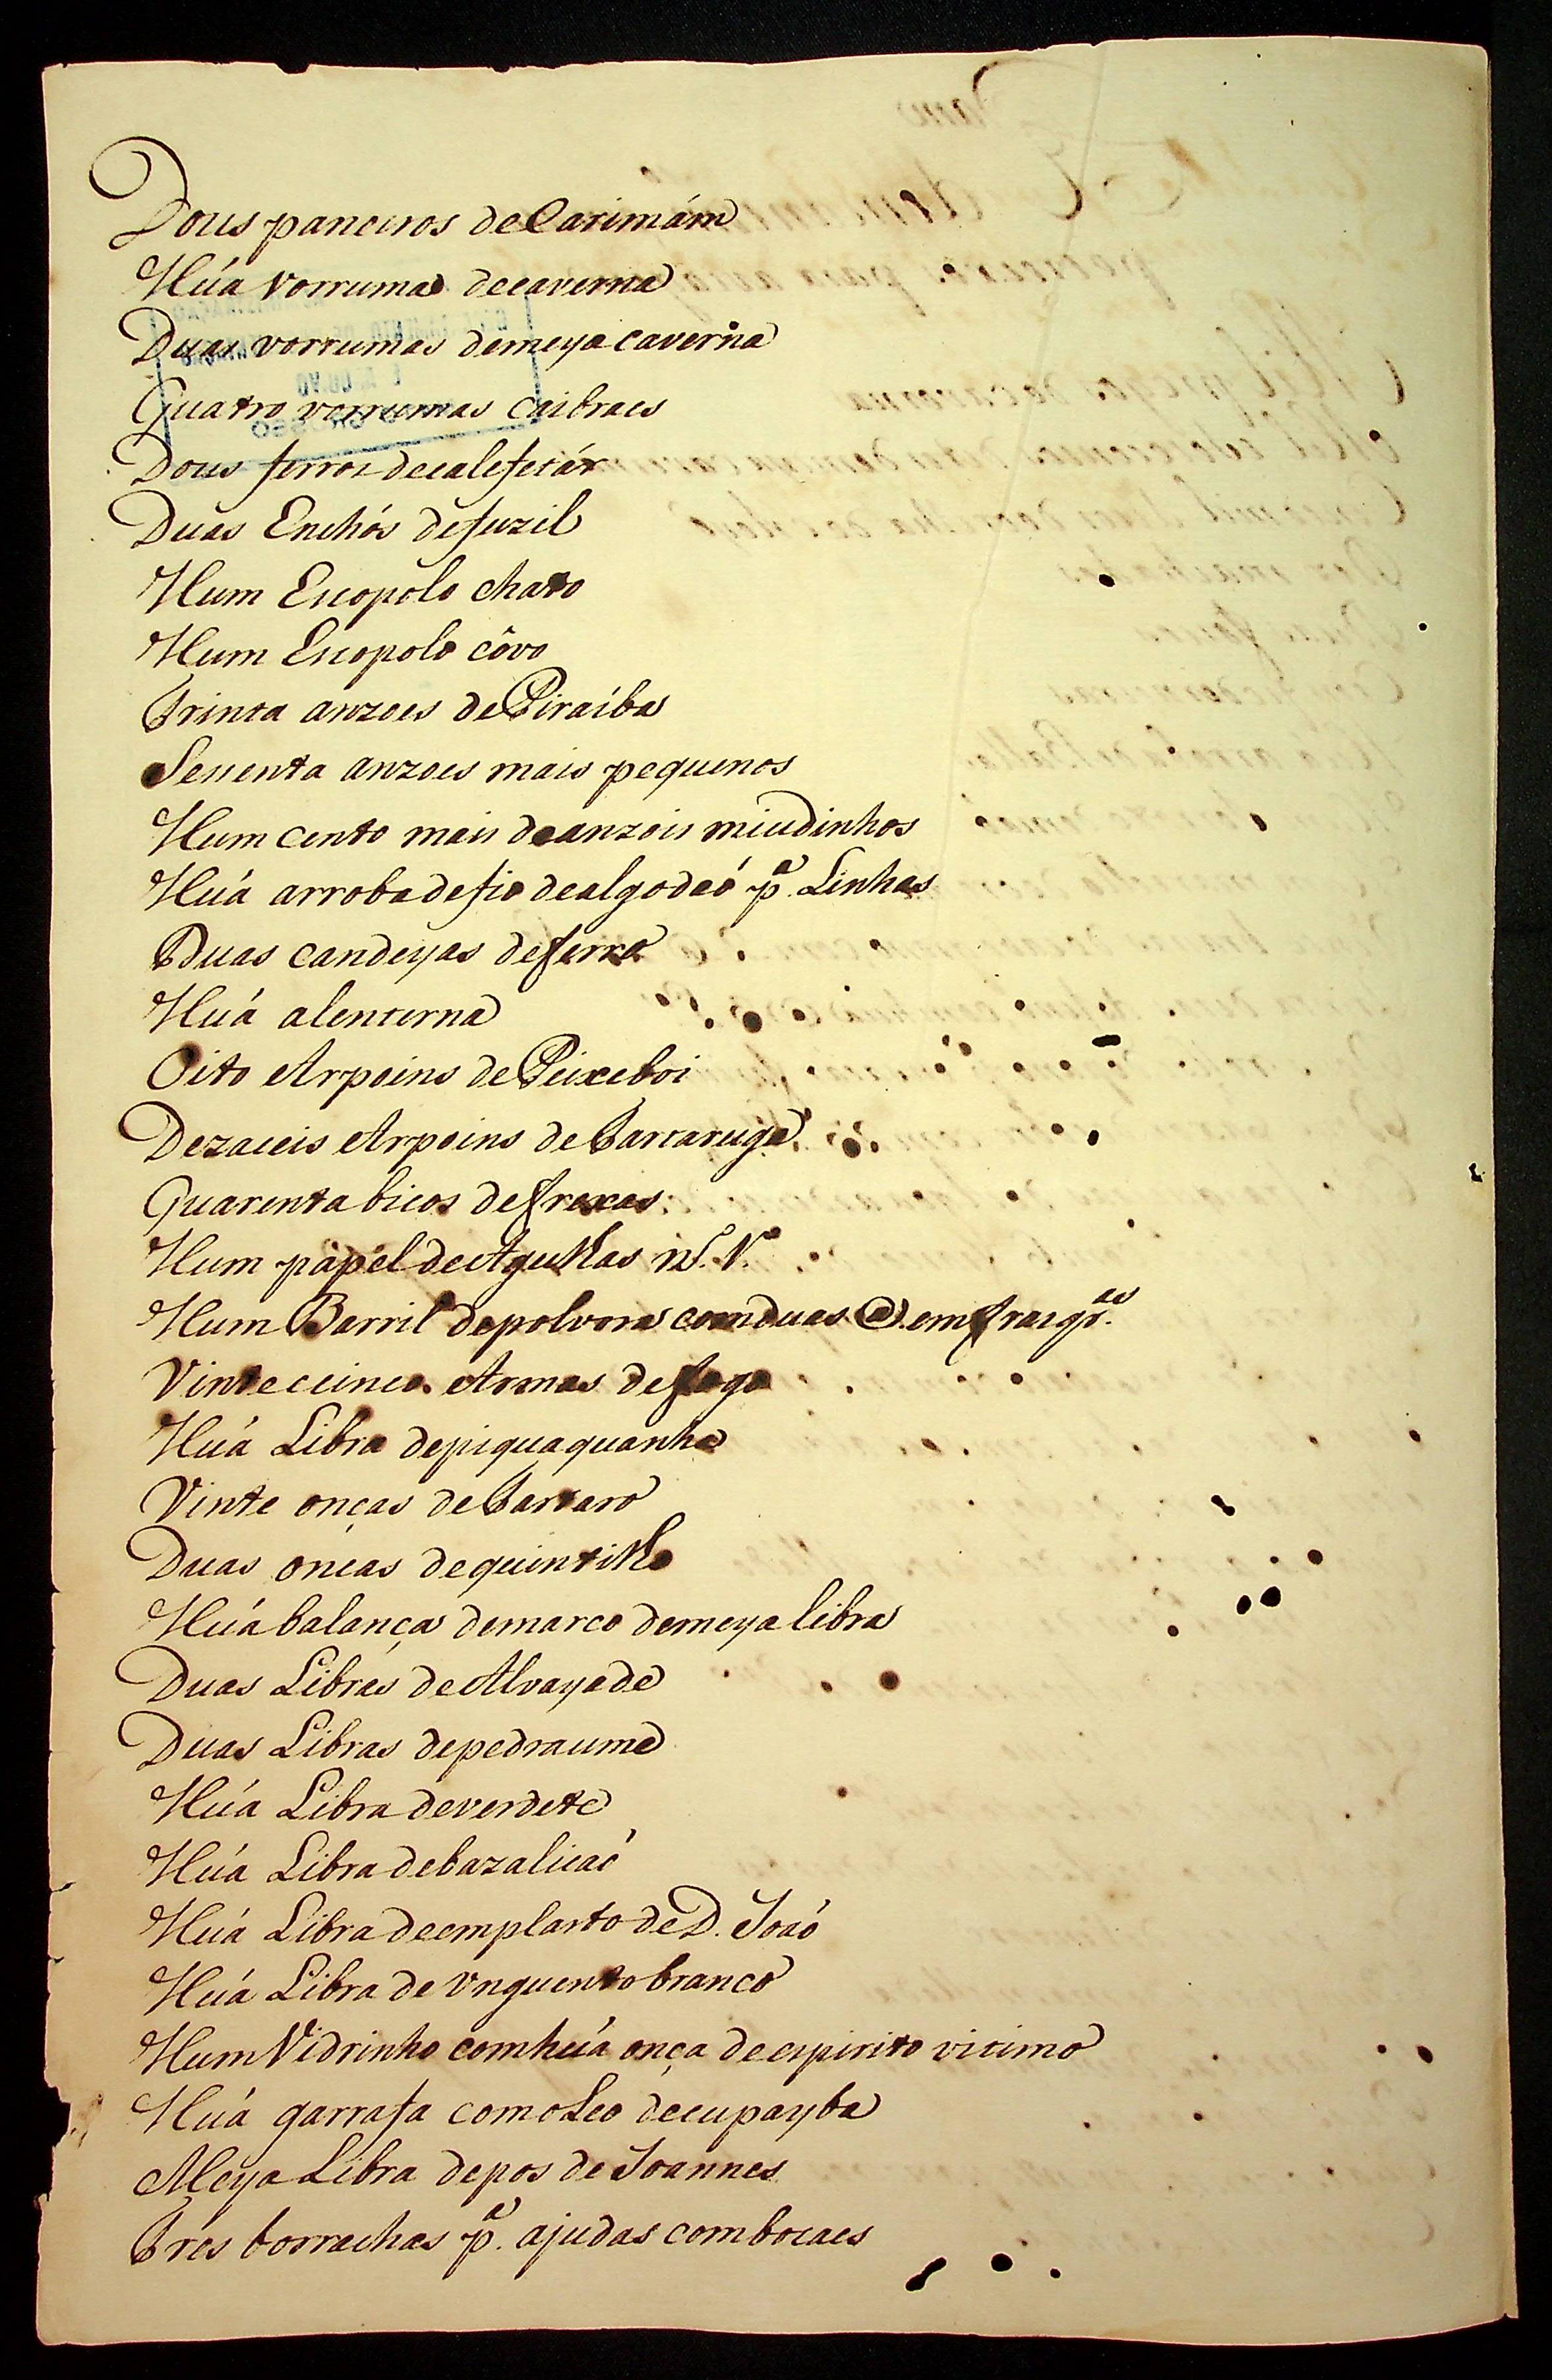 Dous paneiros de Carimám
Huá vorruma de caverna
Duas vorrumas de meya caverna
Quatro vorrumas caibraes
Dous ferros de calefetár
Duas Enchós de fuzil
Hum Escopolo chato
Hum Escopolo côvo
Trinta anzoes de Piraíba
Secenta anzoes mais pequenos
Hum cento mais de anzois miudinhos
Huá arroba de fio de algodaó pª. Linhas
Duas candeyas de ferro
Huá alenterna
Oito Arpoins de Peixe boi
Dezaceis Arpoins de Tartaruga
Quarenta bicos de frexas
Hum papel de Agulhas
Hum Barril de polvora com duas @ em frasqr.ᵃˢ
Vinte e cinco Armas de fogo
Huá Libra de piquaquanha
Vinte onças de Tartaro
Duas oncas de quintilho
Huá balança de marco de meya libra
Duas Libras de Alvayade
Duas Libras de pedraume
Huá Libra de verdete
Huá Libra de bazalicaó
Huá Libra de emplasto de D. Joaó
Huá Libra de vnguento branco
Hum Vidrinho com huá onça de espirito vitimo
Huá garrafa com oleo de cupayba
Meya Libra de pos de Joannes
Tres borrachas pª. ajudas com bocaes